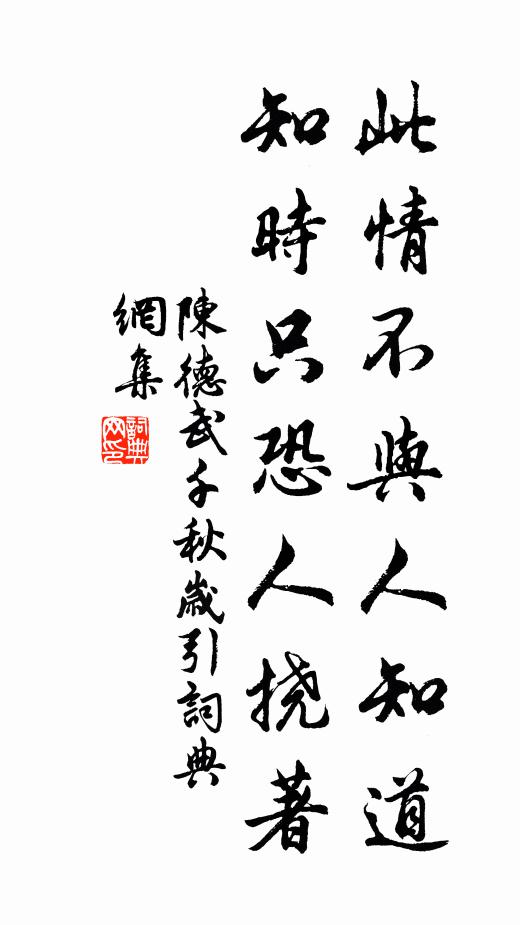 此情不與人知道
知時只恐人挠著
陳德武千秋歲引詞典
網集
詞典
网印